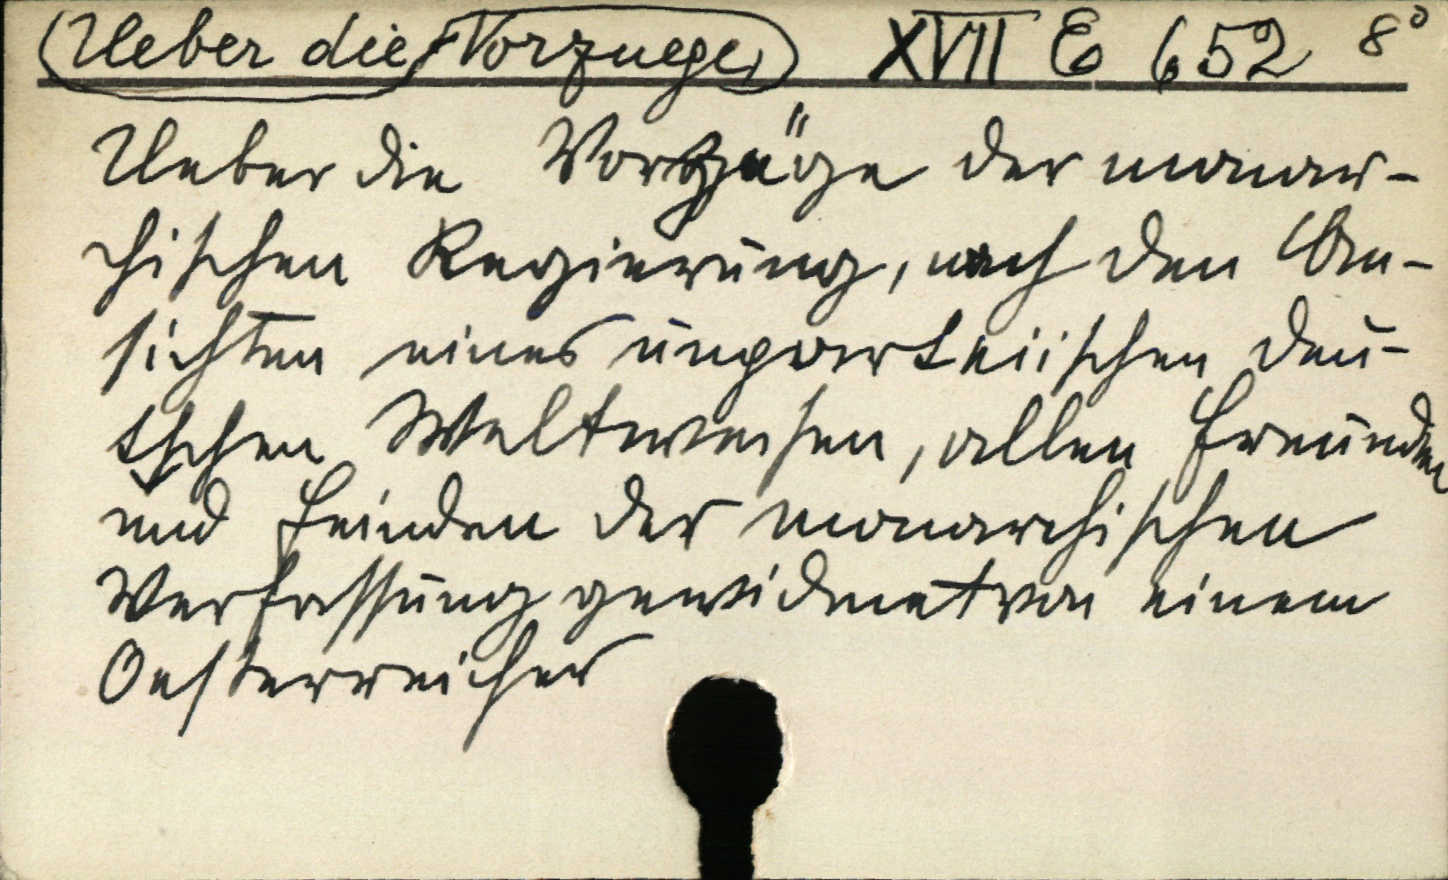 Ueber die Vorzuege XVII E 652 8°
Ueber die Vorzüge der monar-
chischen Regierung, nach den An-
sichten eines unparteiischen deu-
tschen Weltweisen, allen Freunden
und Feinden der monarchischen
Verfassung gewidmet von einem
Oesterreicher